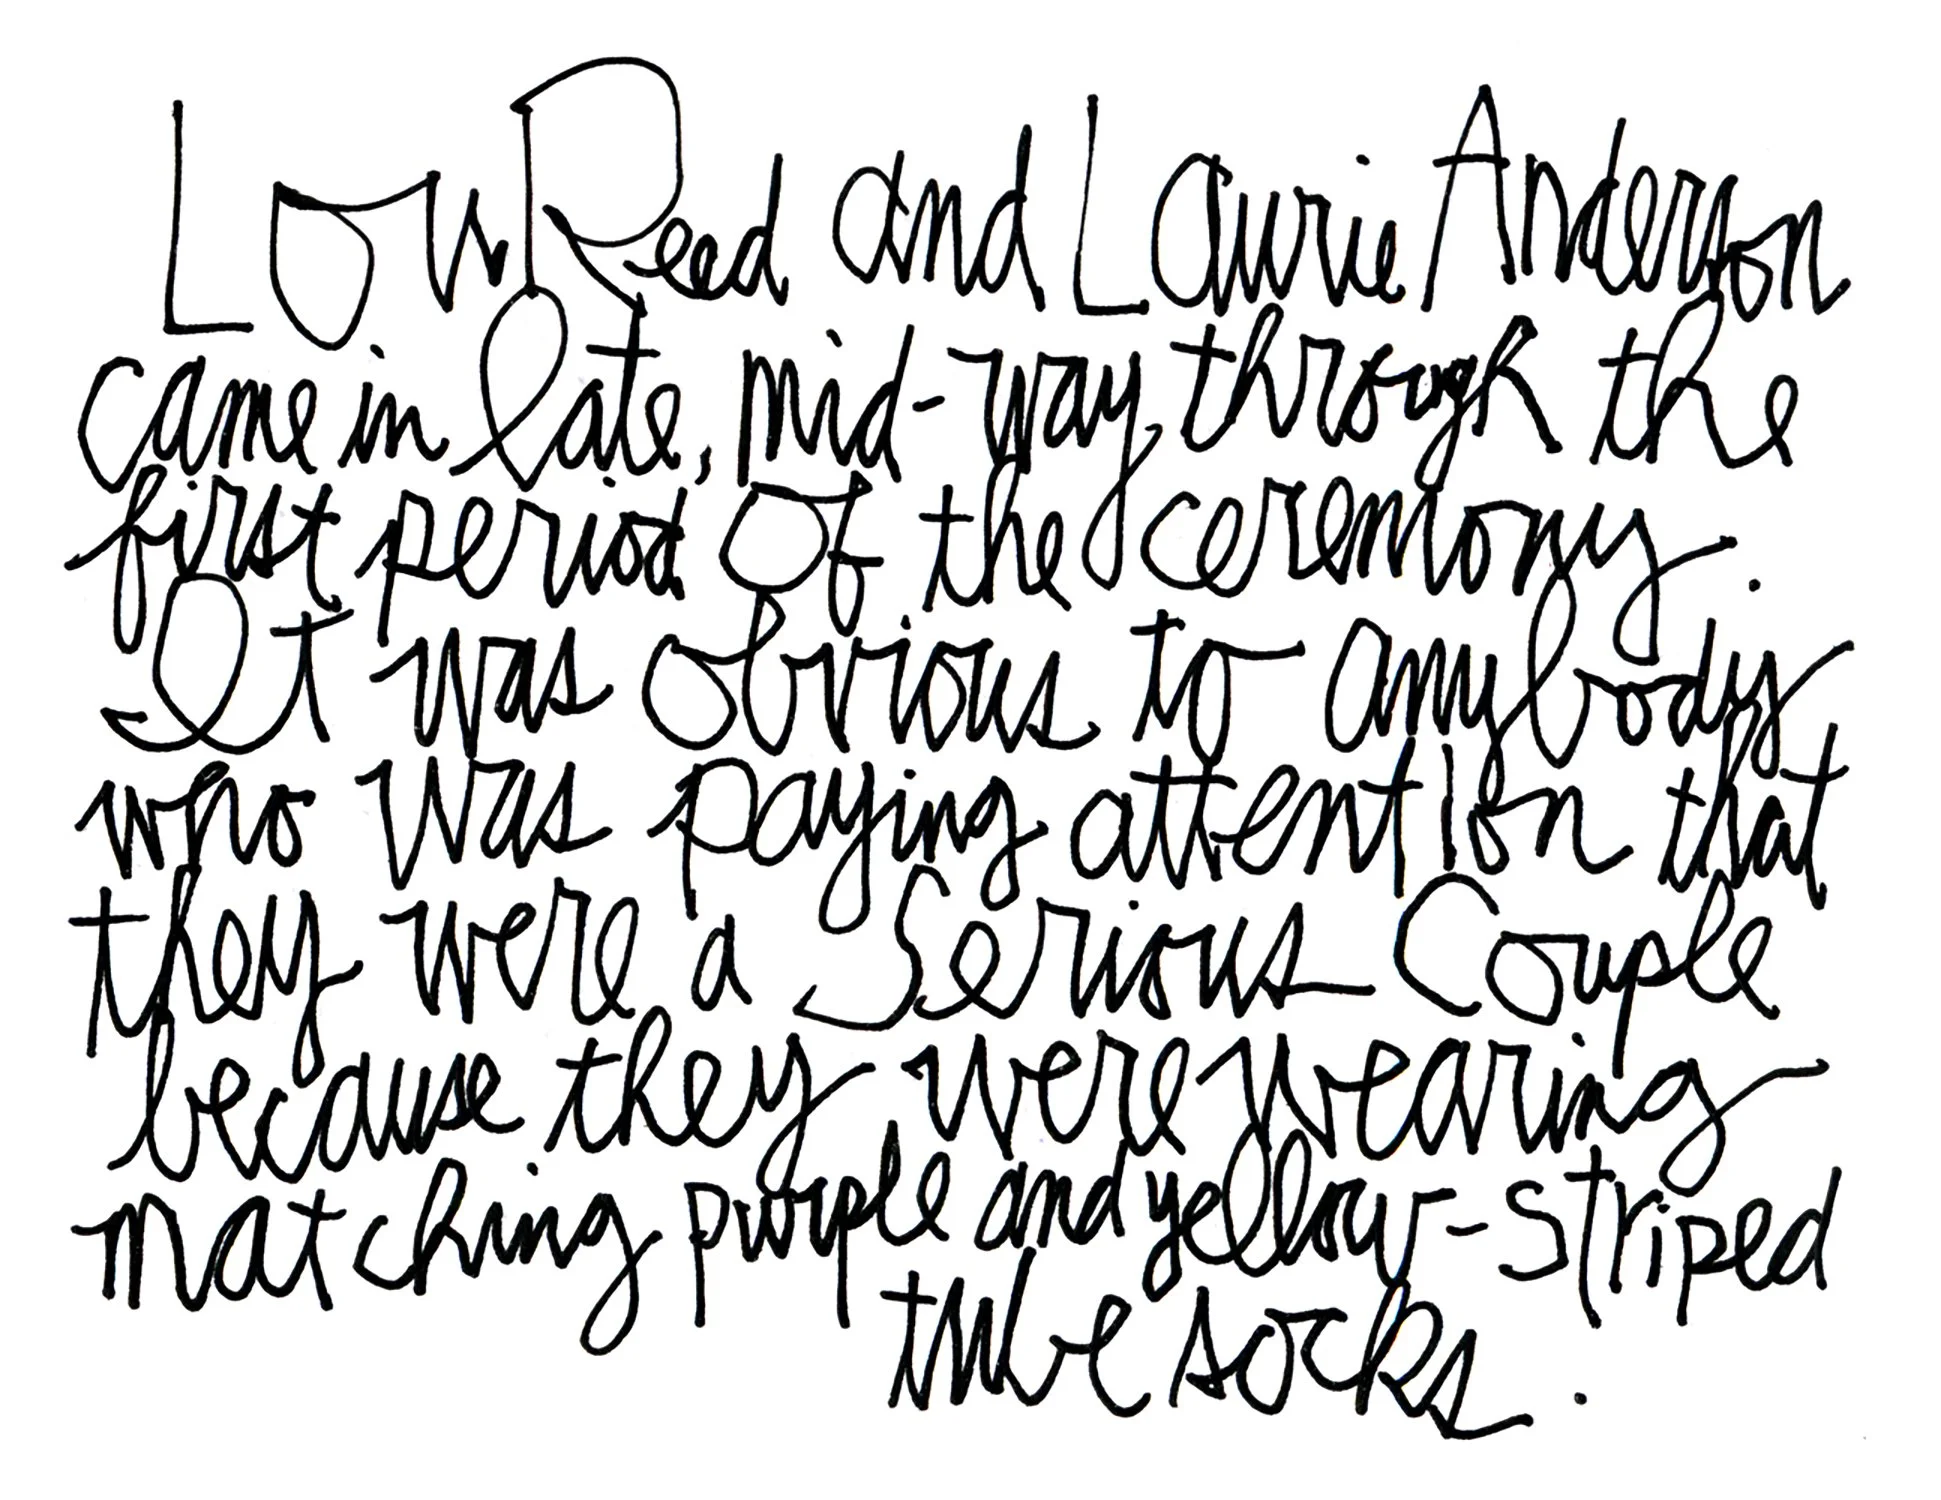 Lou Reed and Laurie Anderson
came in late, mid-way through the
first period of the ceremony.
It was obvious to anybody
who was paying attention that
they were a Serious Couple
because they were wearing
matching purple and yellow-striped
tube socks.